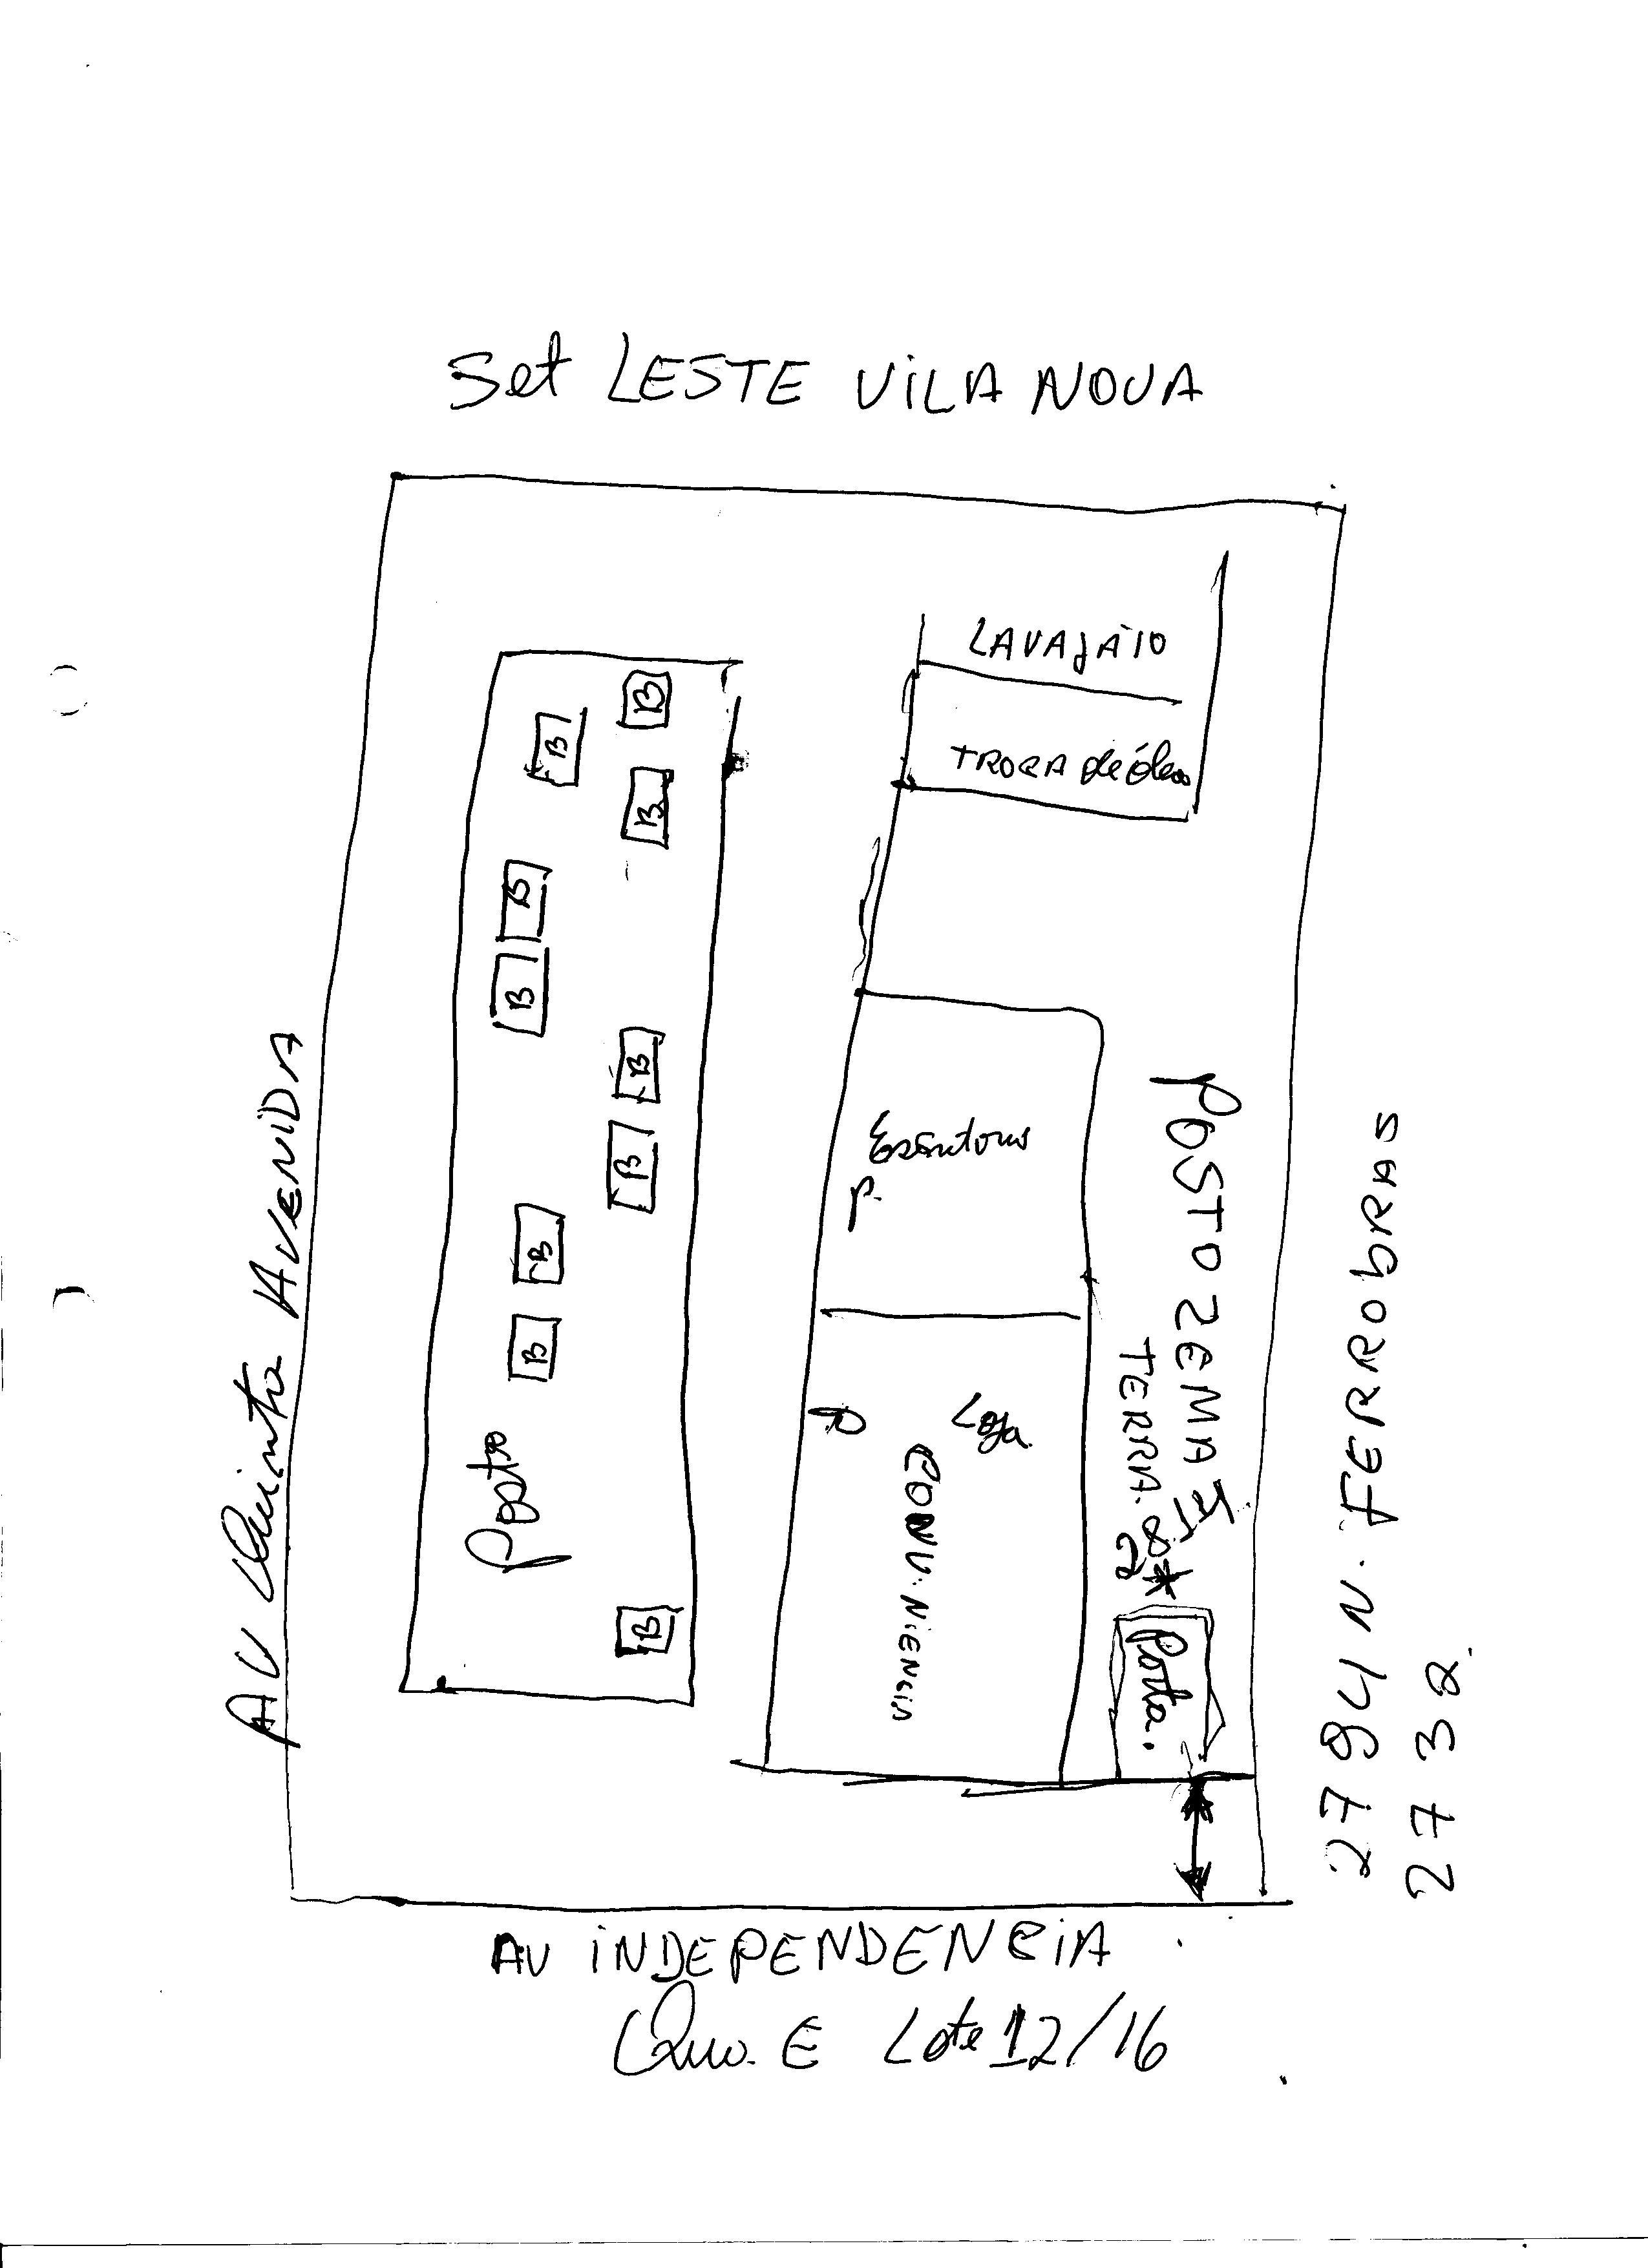 Set LESTE VILA NOVA
LAVAJATO
TROCA de óleo
B
B
B
B
B
B
B
B
B
B
Posto
AV Quinta AVENIDA
P.
Loja
CONV.NIENCIA
POSTO ZEMA
TERRA.
Porta.
2794 N. FERRObRAS
2732.
AV INDEPENDENCIA
Qua. E Lote 12/16